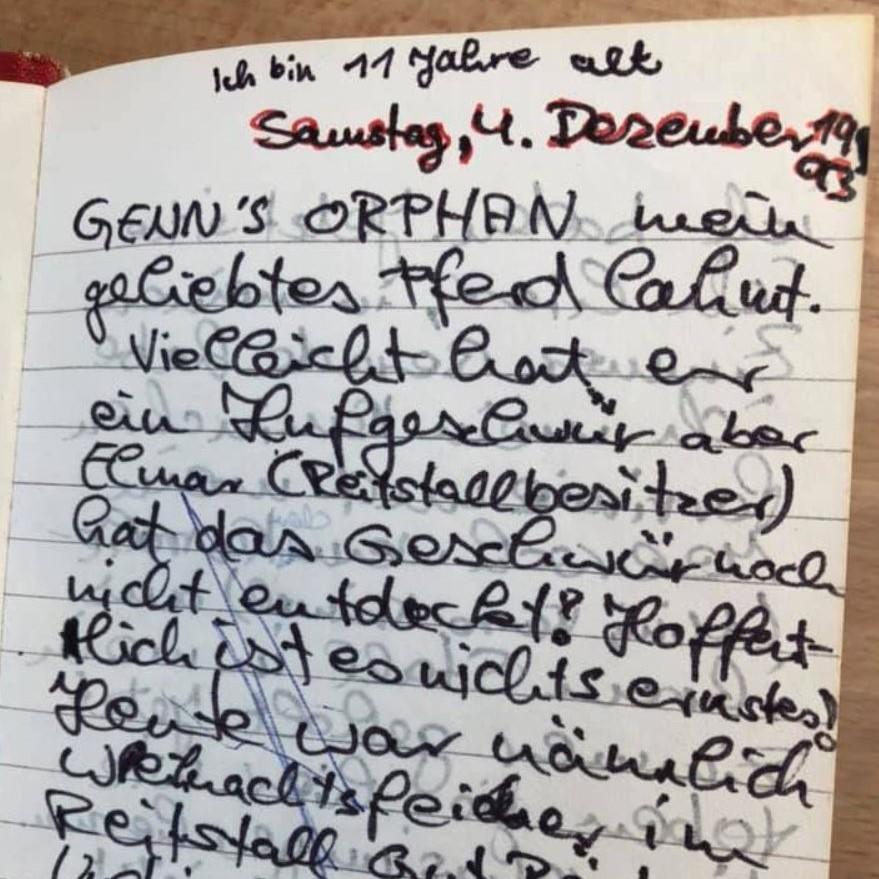 Ich bin 11 Jahre alt
Samstag, 4. Dezember 19
93
GENN'S ORPHAN mein
geliebtes Pferd lahmt.
Vielleicht hat er
ein Hufgeschwür aber
Elmar (Reitstallbesitzer)
hat das Geschwür noch
nicht entdeckt! Hoffent-
lich ist es nichts ernstes!
Heute war nämlich
Weihnachtsfeier im
Reitstall Gut